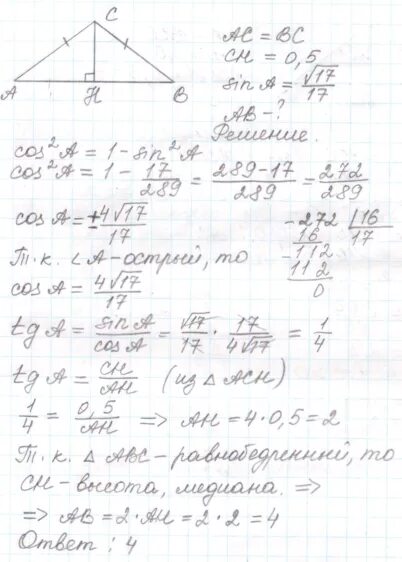 C
A
H
B
AC = BC
CH = 0,5
sin A = √17/17
AB - ?
Решение.
cos²A = 1 - sin²A
cos²A = 1 - 17/289 = (289-17)/289 = 272/289
cos A = ±4√17/17
-272 |16
16 17
-112
112
0
Т.к. ∠A - острый, то
cos A = 4√17/17.
tg A = sin A/cos A = √17/17 · 17/4√17 = 1/4
tg A = CH/AH (из △ ACH)
1/4 = 0,5/AH => AH = 4·0,5 = 2
Т.к. △ ABC - равнобедренный, то
CH - высота, медиана. =>
=> AB = 2·AH = 2·2 = 4
Ответ: 4